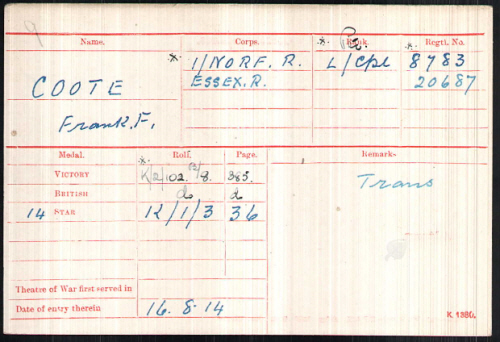 Name. Corps. Rank. Regtl. No.
COOTE * 1/NORF. R. L/Cpl 8783
ESSEX. R. 20687
Frank. F.
Medal. Roll. Page. Remarks
VICTORY K/2/102 B/8. 385. Trans
BRITISH do do
14 STAR K/1/3 36
Theatre of War first served in
Date of entry therein 16. 8. 14 K 1380.